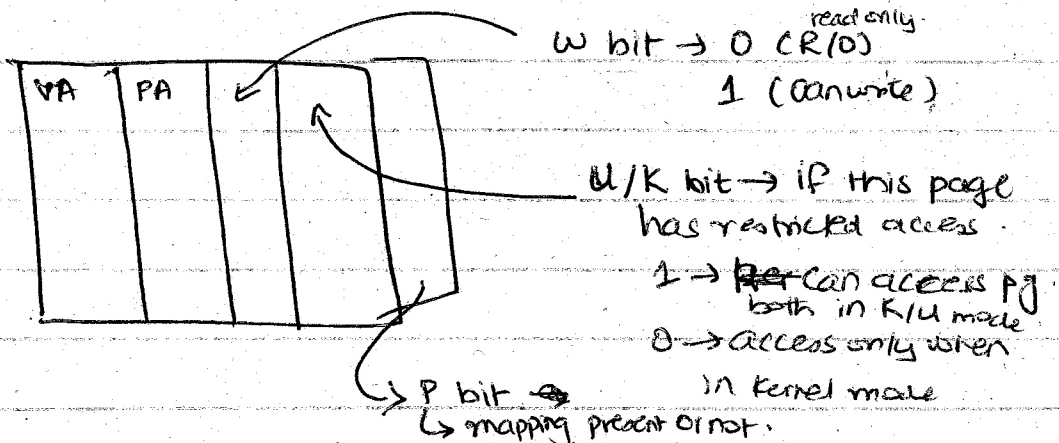 read only.
W bit → 0 (R/O)
1 (Can write)
VA PA
U/K bit → if this page
has restricted access.
1 → can access pg.
both in K/U mode
0 → access only when
in kernel mode
↳ P bit
↳ mapping present or not.